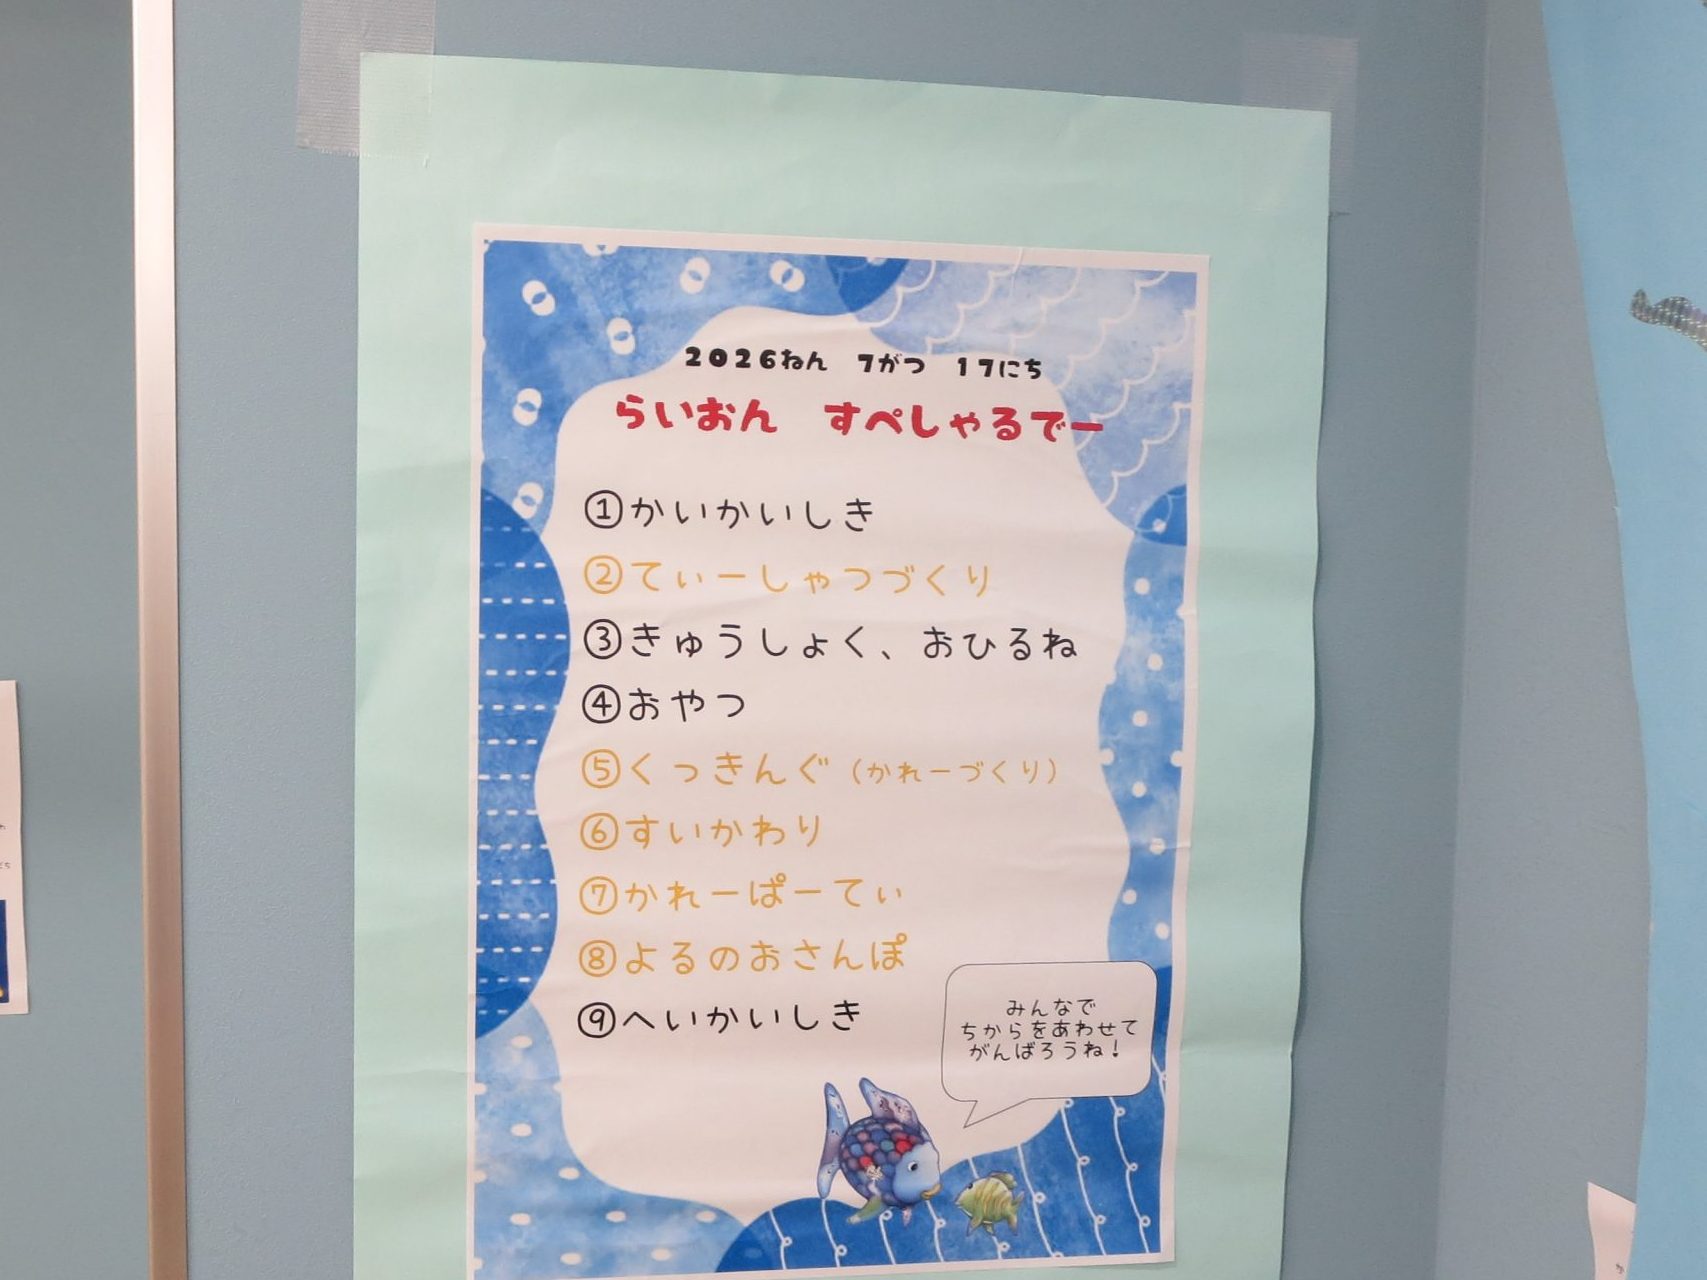 2026ねん　7がつ　17にち
らいおん　すぺしゃるでー
①かいかいしき
②てぃーしゃつづくり
③きゅうしょく、おひるね
④おやつ
⑤くっきんぐ（かれーづくり）
⑥すいかわり
⑦かれーぱーてぃ
⑧よるのおさんぽ
⑨へいかいしき
みんなで
ちからをあわせて
がんばろうね！